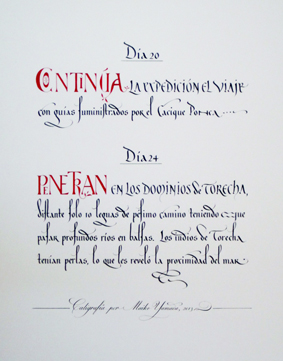 Día 20
CONTINÚA LA EXPEDICIÓN EL VIAJE
con guías suministrados por el Cacique Ponca
Día 24
PENETRAN EN LOS DOMINIOS DE TORECHA,
distante solo 10 leguas de pésimo camino teniendo que
pasar profundos ríos en balsas. Los indios de Torecha
tenían perlas, lo que les reveló la proximidad del mar
Caligrafía por